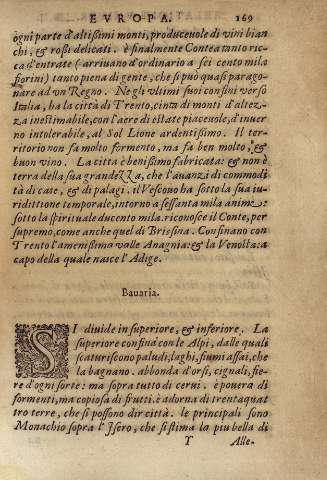 EVROPA. 169
ogni parte d'altißimi monti, produceuole di vini bian
chi, & roßi delicati. è finalmente Contea tanto ric-
ca d'entrate (arriuano d'ordinario a sei cento mila
fiorini) tanto piena di gente, che si può quasi parago-
nare ad vn Regno. Ne gli vltimi suoi confini verso
Italia, ha la città di Trento, cinta di monti d'altez-
za inestimabile, con l'aere di estate piaceuole, d'inuer
no intolerabile, al Sol Lione ardentißimo. Il ter-
ritorio non fa molto formento, ma fa ben molto, &
buon vino. La città è benißimo fabricata: & non è
terra della sua grandezza, che l'auanzi di commodi
tà di case, & di palagi. il Vescouo ha sotto la sua iu-
ridittione temporale, intorno a sessanta mila anime:
sotto la spirituale ducento mila. riconosce il Conte, per
supremo, come anche quel di Brissina. Confinano con
Trento l'amenißima valle Anagnia: & la Venosta: a
capo della quale nasce l'Adige.
Bauaria.
SI diuide in superiore, & inferiore. La
superiore confina con le Alpi, dalle quali
scaturiscono paludi, laghi, fiumi assai, che
la bagnano. abbonda d'orsi, cignali, fie-
re d'ogni sorte: ma sopra tutto di cerui. è pouera di
formenti, ma copiosa di frutti. è adorna di trentaquat
tro terre, che si possono dir città. le principali sono
Monachio sopra l'Isero, che si stima la piu bella di
Y Alle-